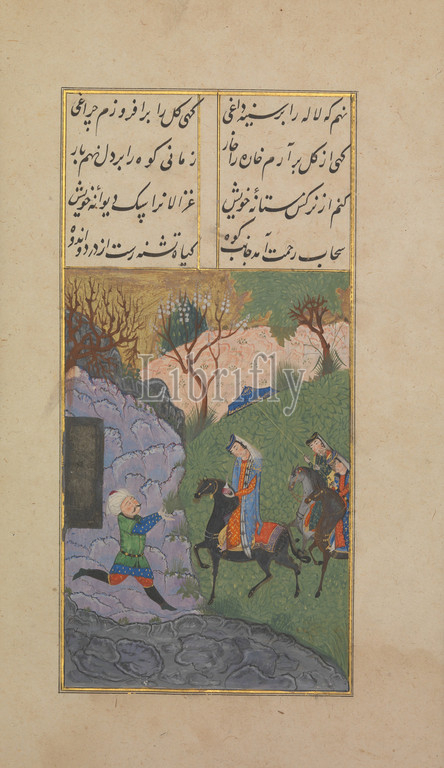 نهم که لاله را بر سینه داغی   کهی کل را برافروزم چراغی
کهی از کل برآرم خانه را خار   زمانی کوه را بر دل نهم بار
کنم از نرکس مستانهٔ خویش   غزالانرا سک دیوانهٔ خویش
سحاب رحمت آمد جانب کوه   کیاه تشنه رست از درد و اندوه
Librifly